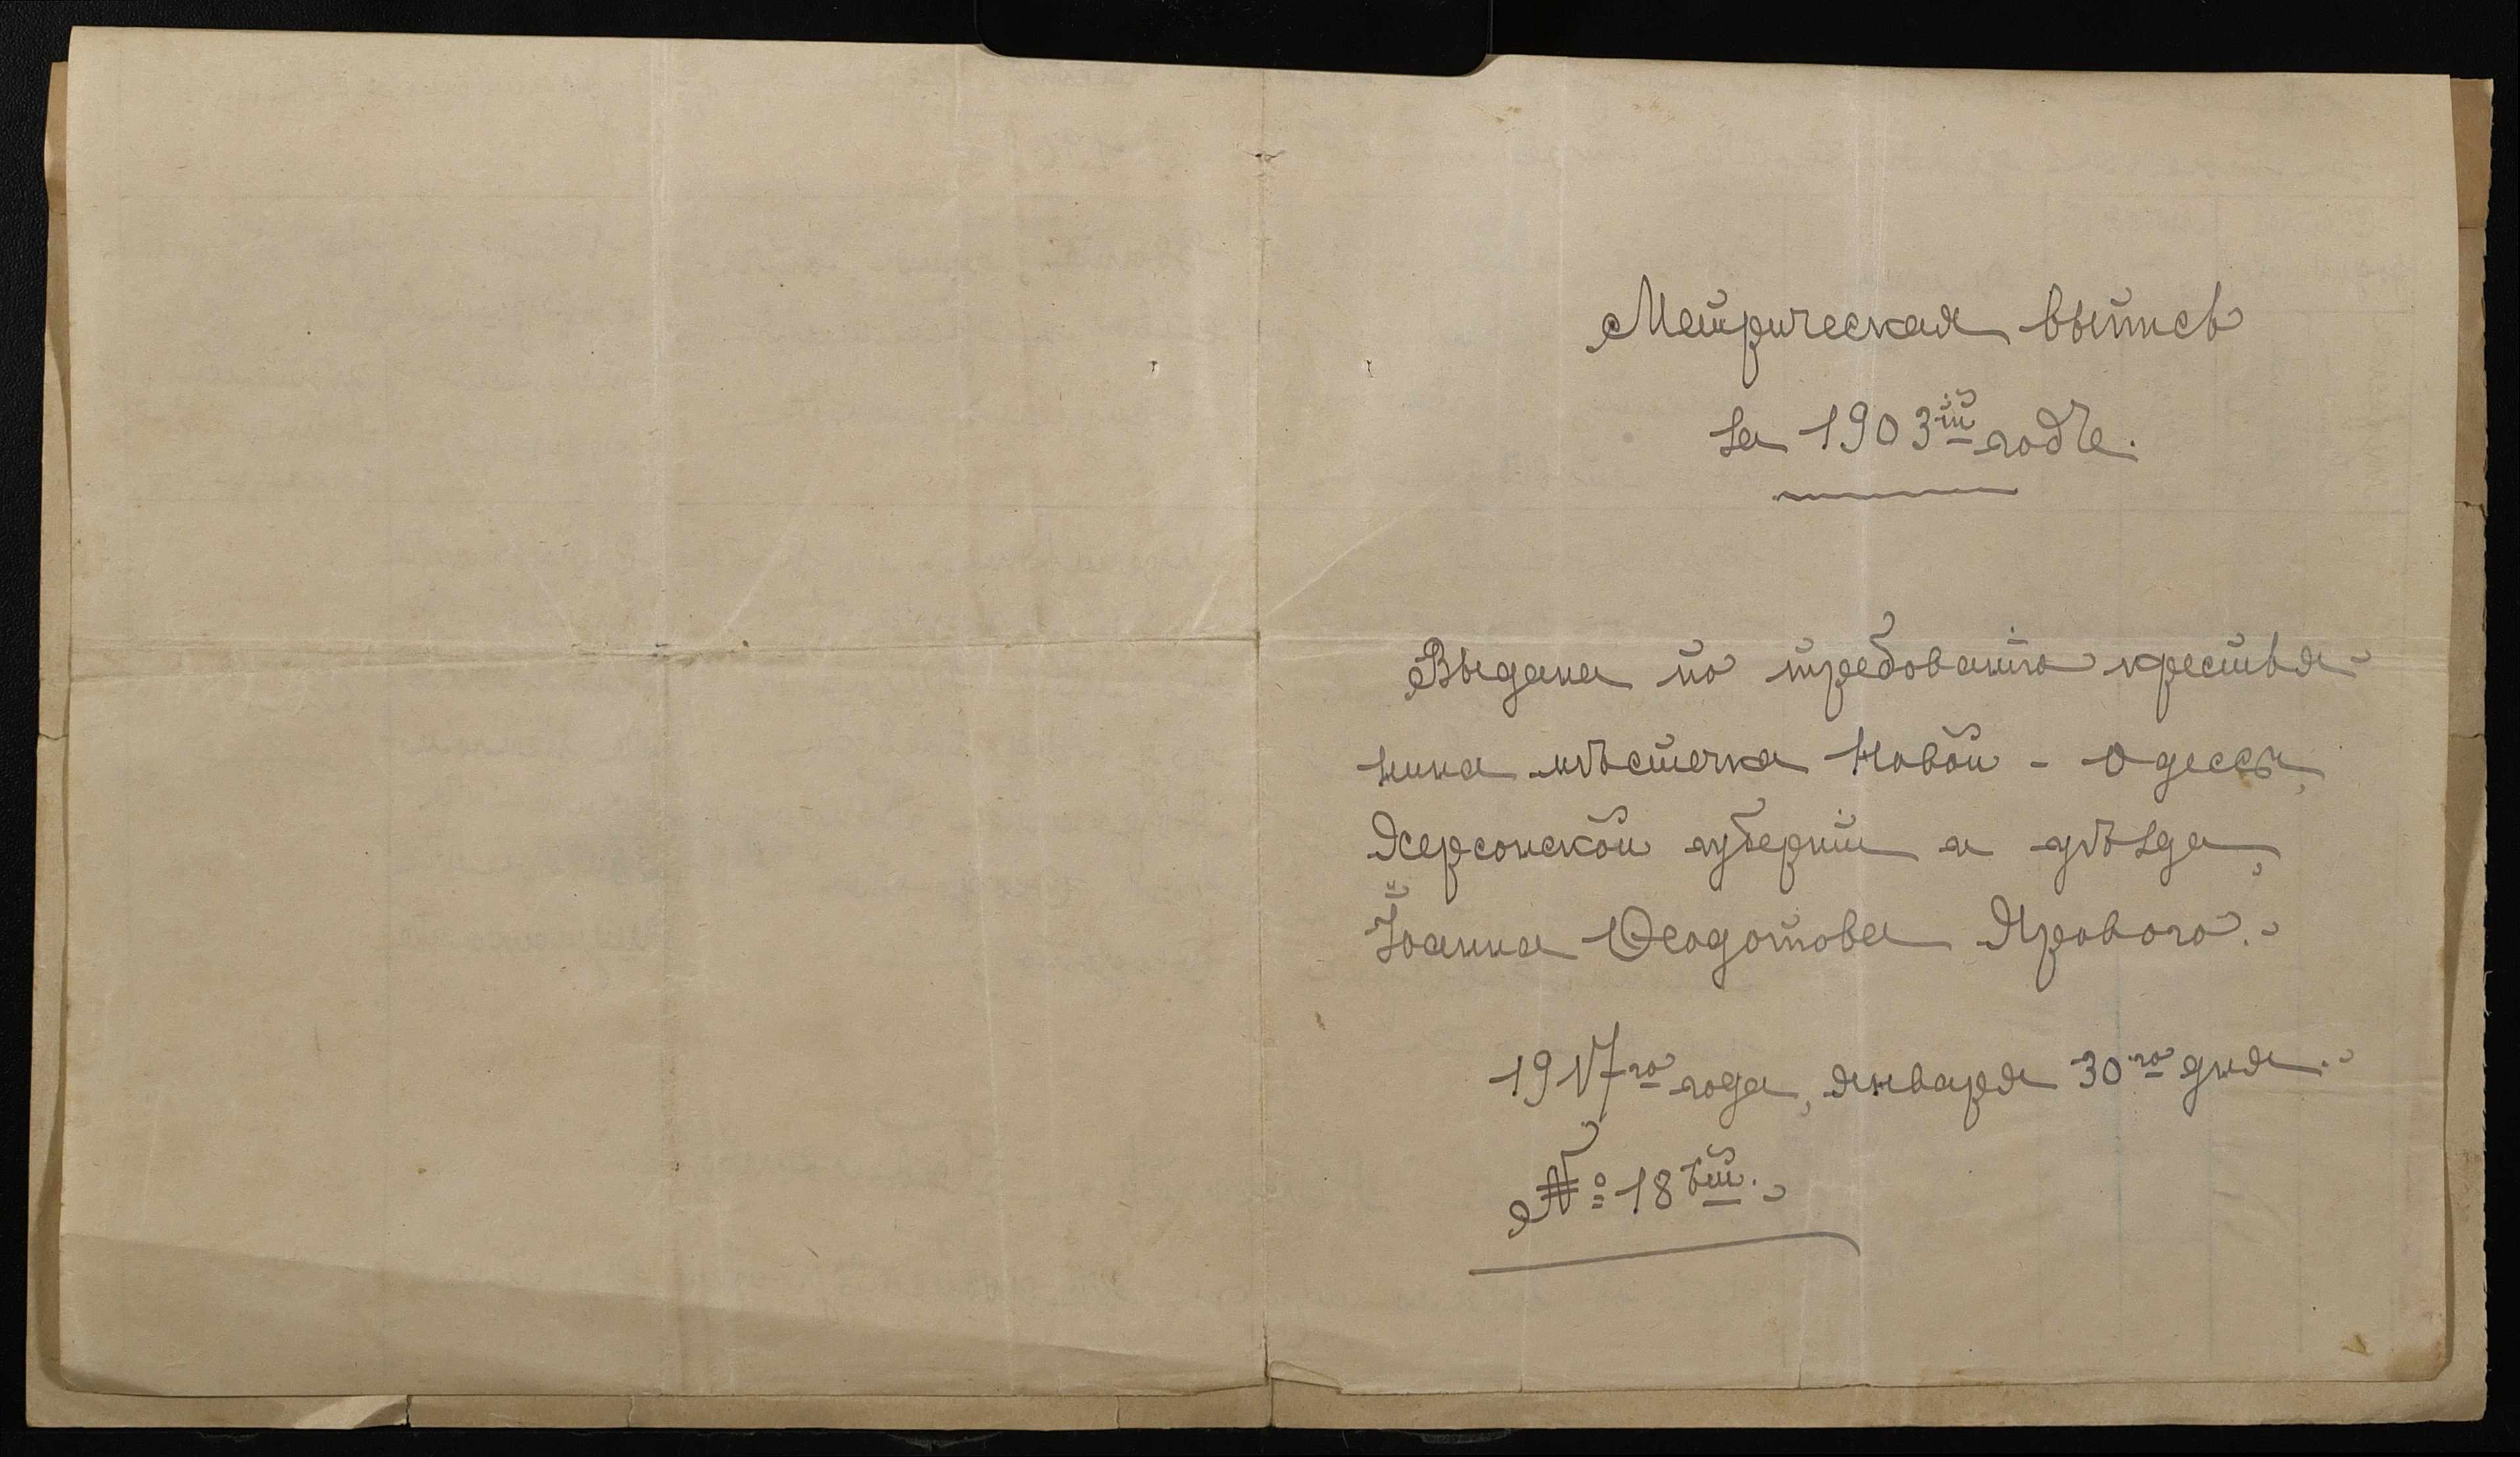 Метрическая выпись
за 1903ій годъ.
Выдана по требованію крестья-
нина мѣстечка Новой - Одессы,
Херсонской губерніи и уѣзда,
Іоанна Ѳеодотова Ярового.-
1917го года, января 30го дня.-
№ 18ый.-